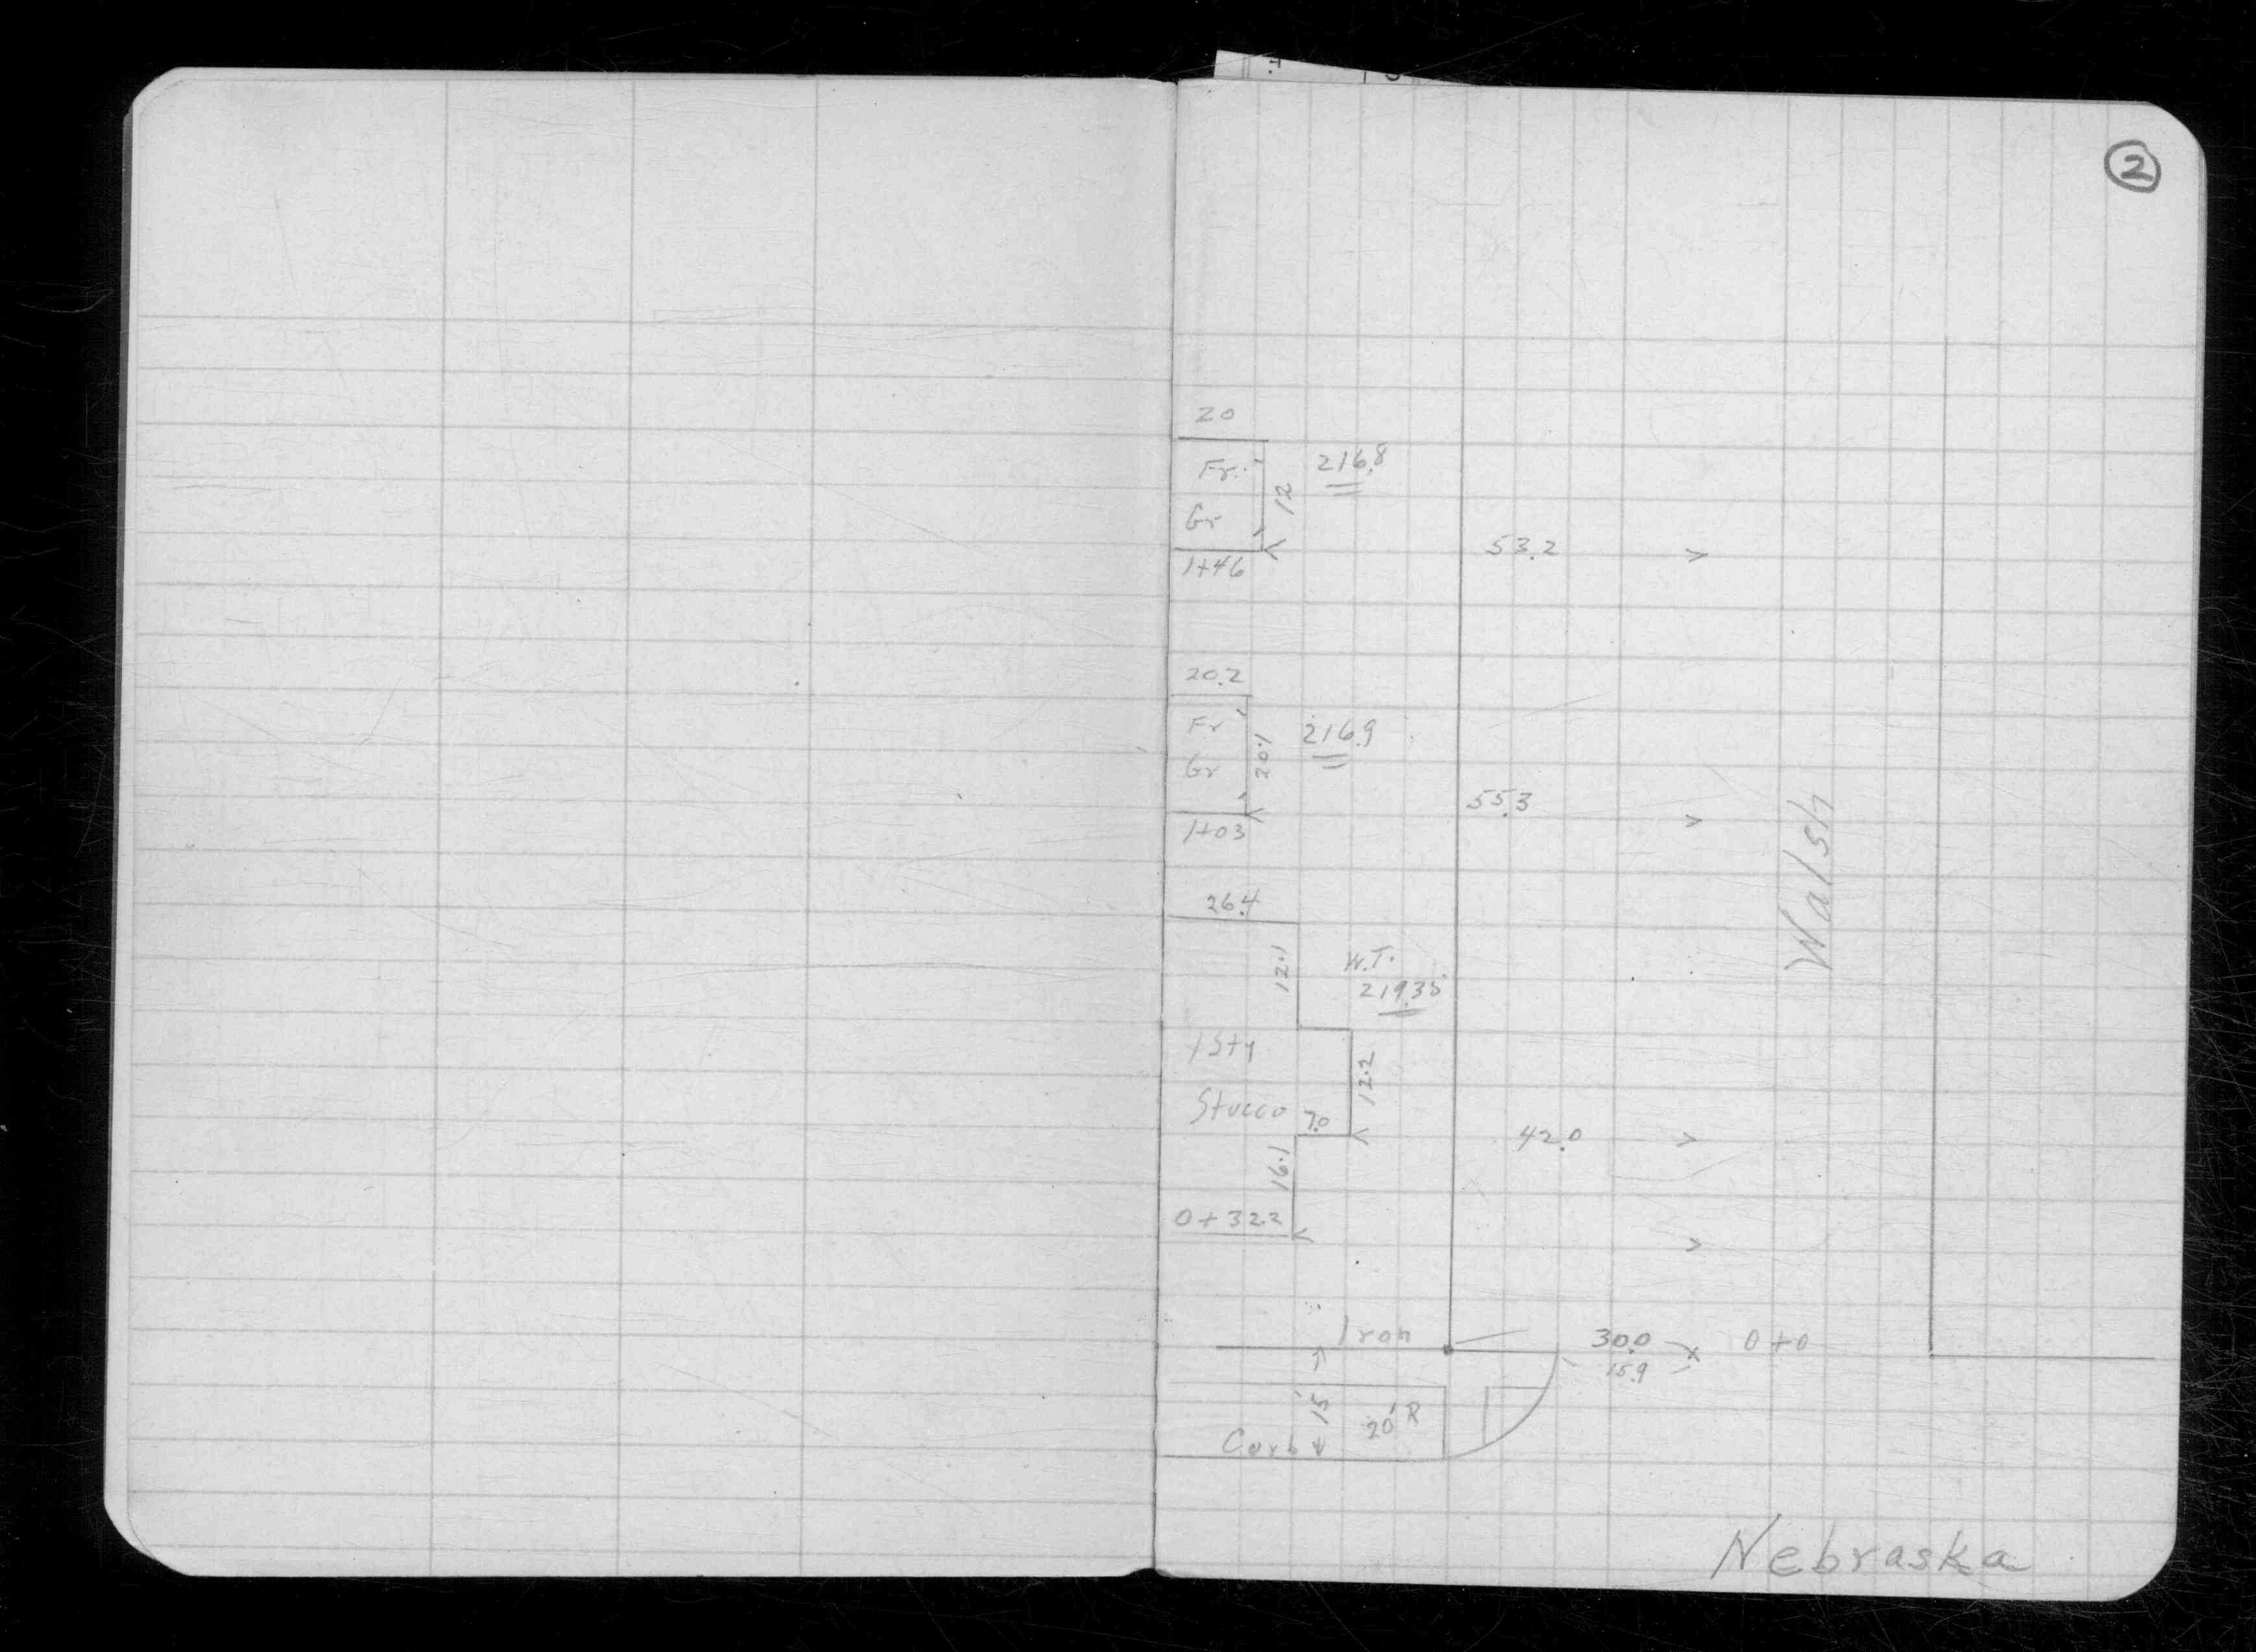 2
20
Fr.
216.8
12
Gr
53.2
1+46
20.2
Fr
216.9
20.1
Gr
55.3
1+03
Walsh
26.4
12.1
W.T.
219.35
1 Sty
12.2
Stucco
7.0
42.0
16.1
0+32.2
Iron
30.0
0+0
15.9
15'
20' R
Curb
Nebraska